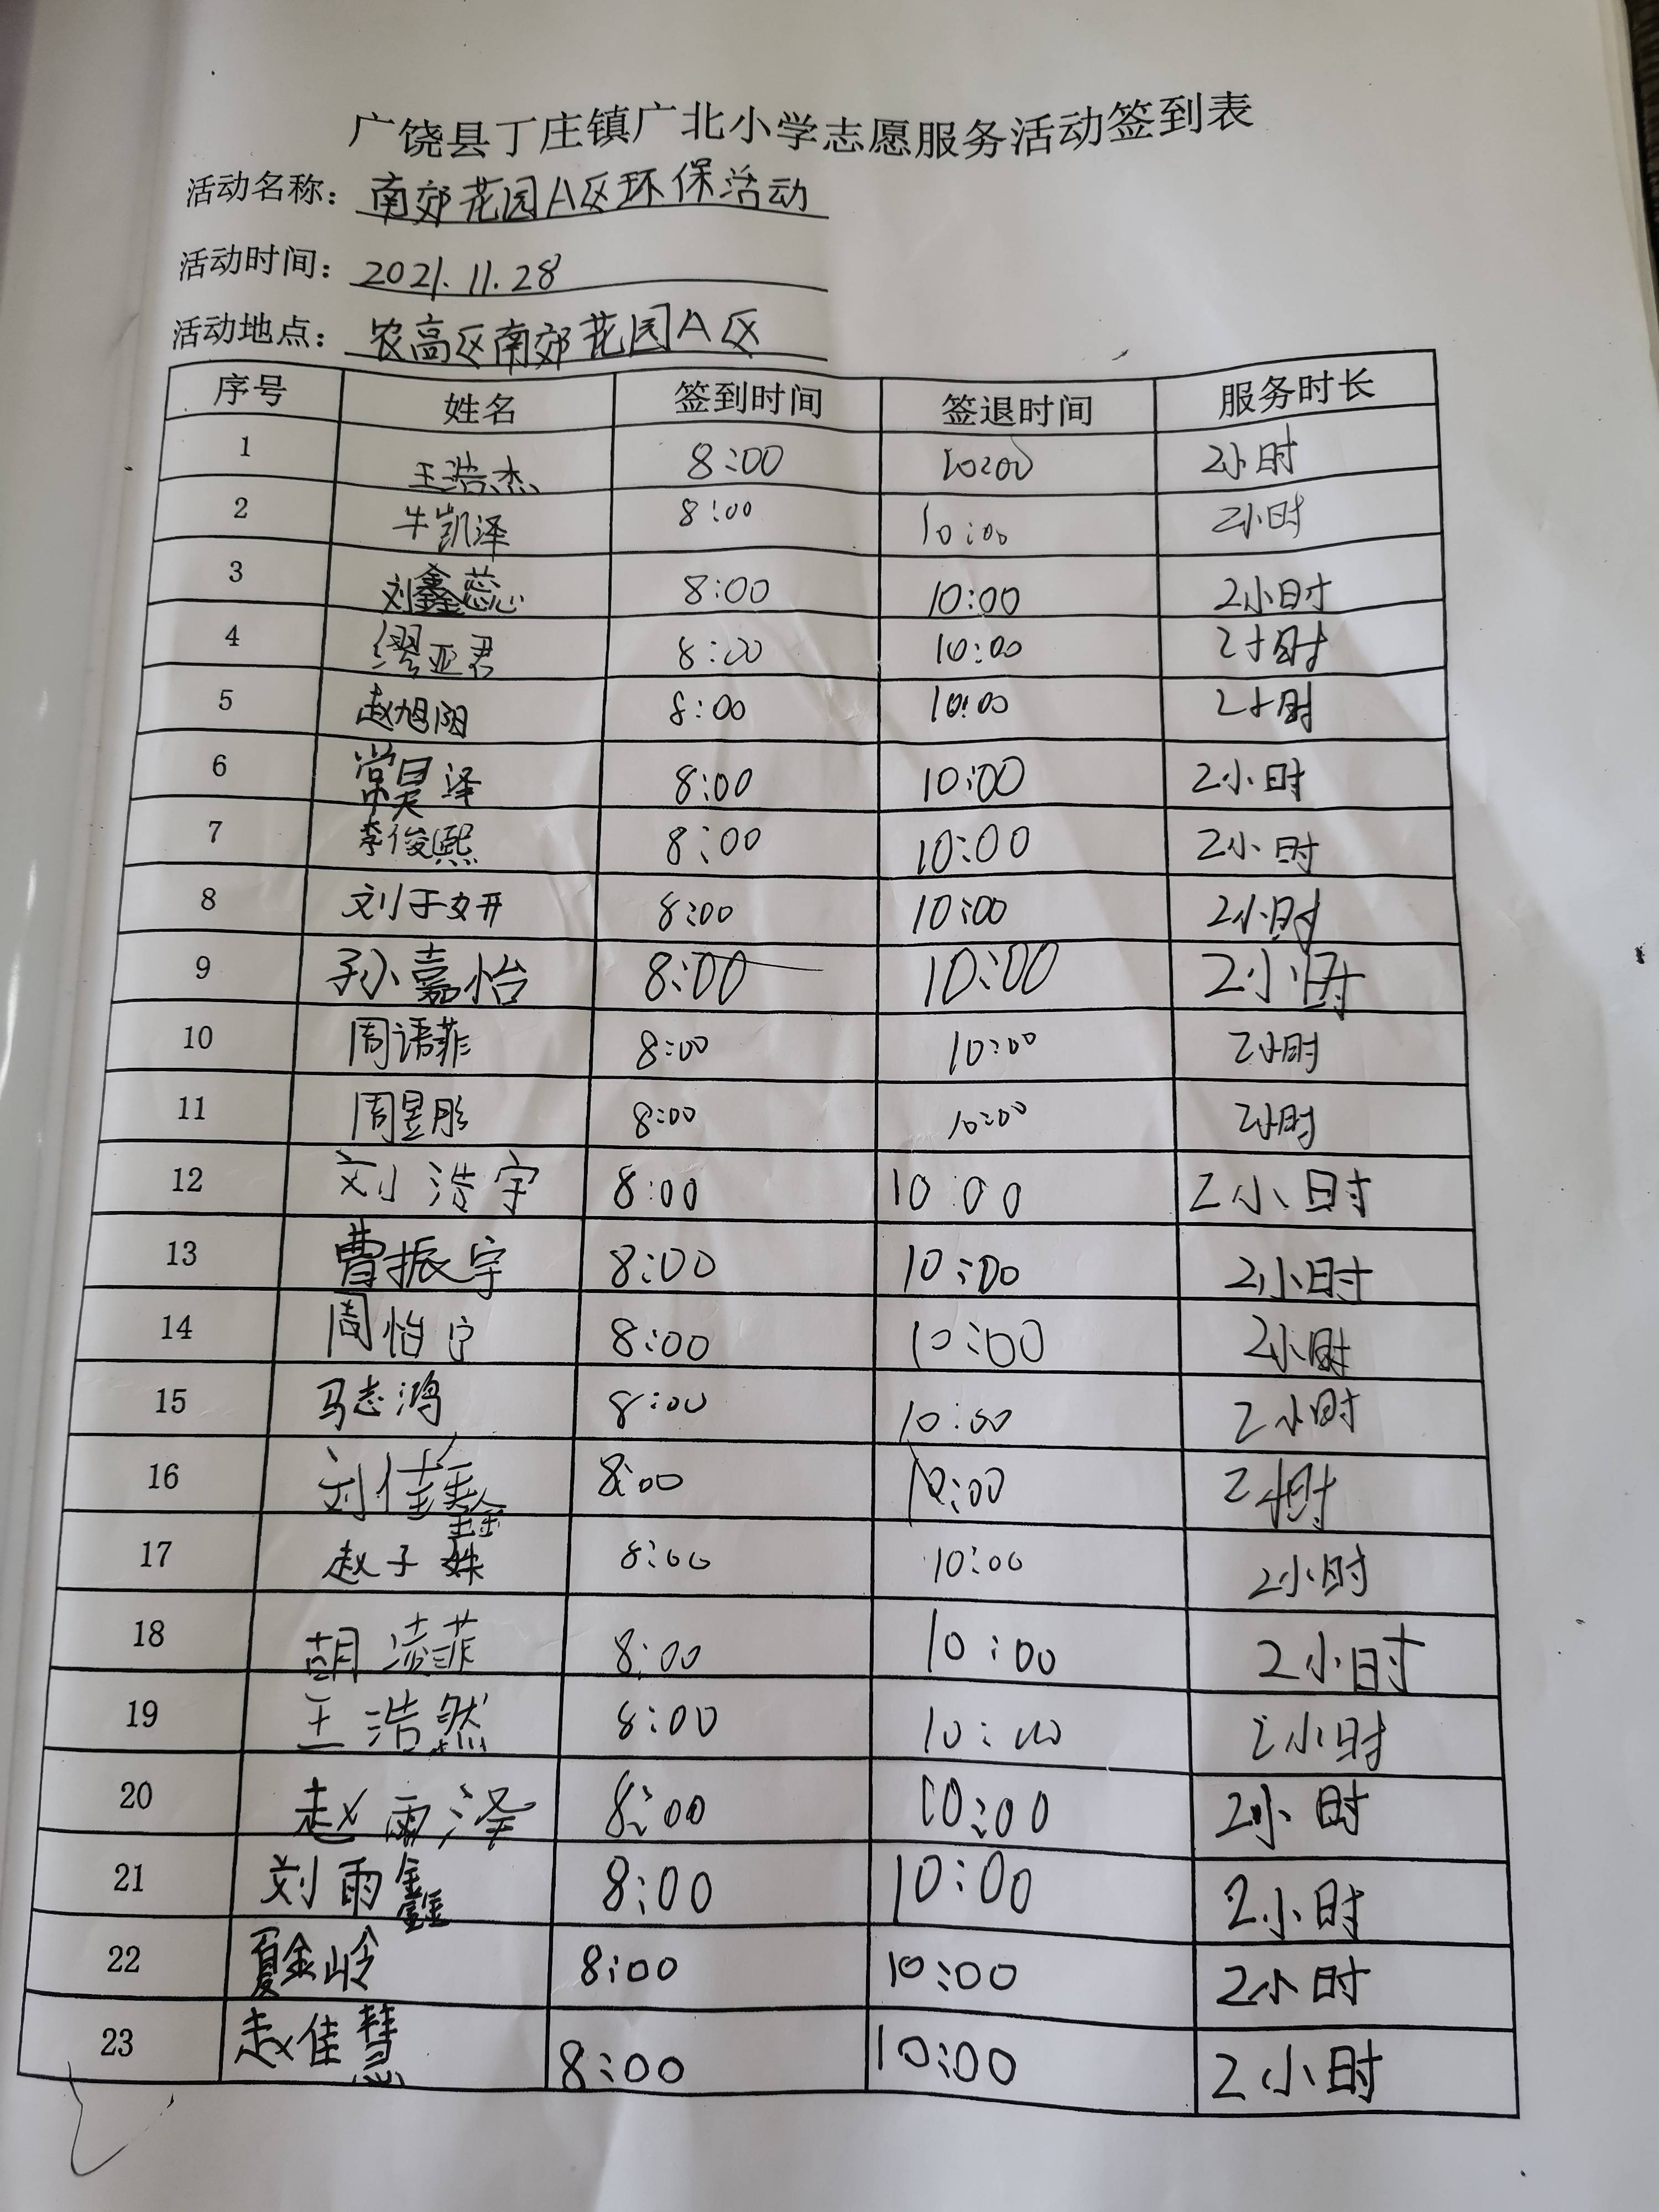 广饶县丁庄镇广北小学志愿服务活动签到表
活动名称：南郊花园A区环保活动
活动时间：2021.11.28
活动地点：农高区南郊花园A区
序号 姓名 签到时间 签退时间 服务时长
1 王浩杰 8:00 10:00 2小时
2 牛凯泽 8:00 10:00 2小时
3 刘鑫蕊 8:00 10:00 2小时
4 缪亚君 8:00 10:00 2小时
5 赵旭阳 8:00 10:00 2小时
6 常昊泽 8:00 10:00 2小时
7 李俊熙 8:00 10:00 2小时
8 刘于妍 8:00 10:00 2小时
9 孙嘉怡 8:00 10:00 2小时
10 周语菲 8:00 10:00 2小时
11 周昱彤 8:00 10:00 2小时
12 刘浩宇 8:00 10:00 2小时
13 曹振宇 8:00 10:00 2小时
14 周怡宁 8:00 10:00 2小时
15 马志鸿 8:00 10:00 2小时
16 刘佳鑫 8:00 10:00 2小时
17 赵子姝 8:00 10:00 2小时
18 8:00 10:00 2小时
19 王浩然 8:00 10:00 2小时
20 赵雨泽 8:00 10:00 2小时
21 刘雨鑫 8:00 10:00 2小时
22 夏金岭 8:00 10:00 2小时
23 赵佳慧 8:00 10:00 2小时